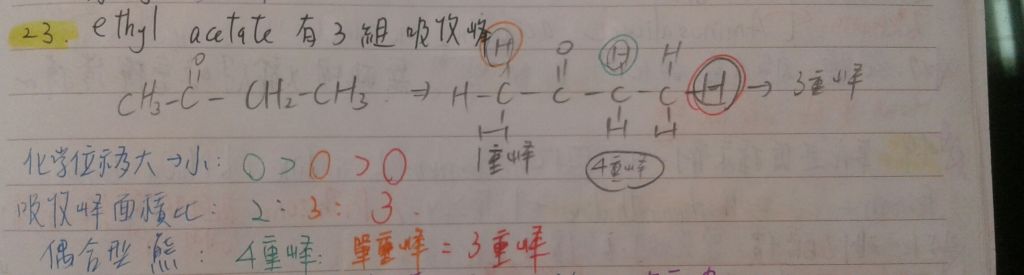 23. ethyl acetate 有 3 組 吸收峰
O
CH3-C-CH2-CH3 ⇒ H-C-C-C-C-H → 3重峰
H O H H
H H H
1重峰 4重峰
化學位移大→小: O > O > O
吸收峰面積比: 2: 3: 3.
偶合型態: 4重峰: 單重峰 = 3重峰